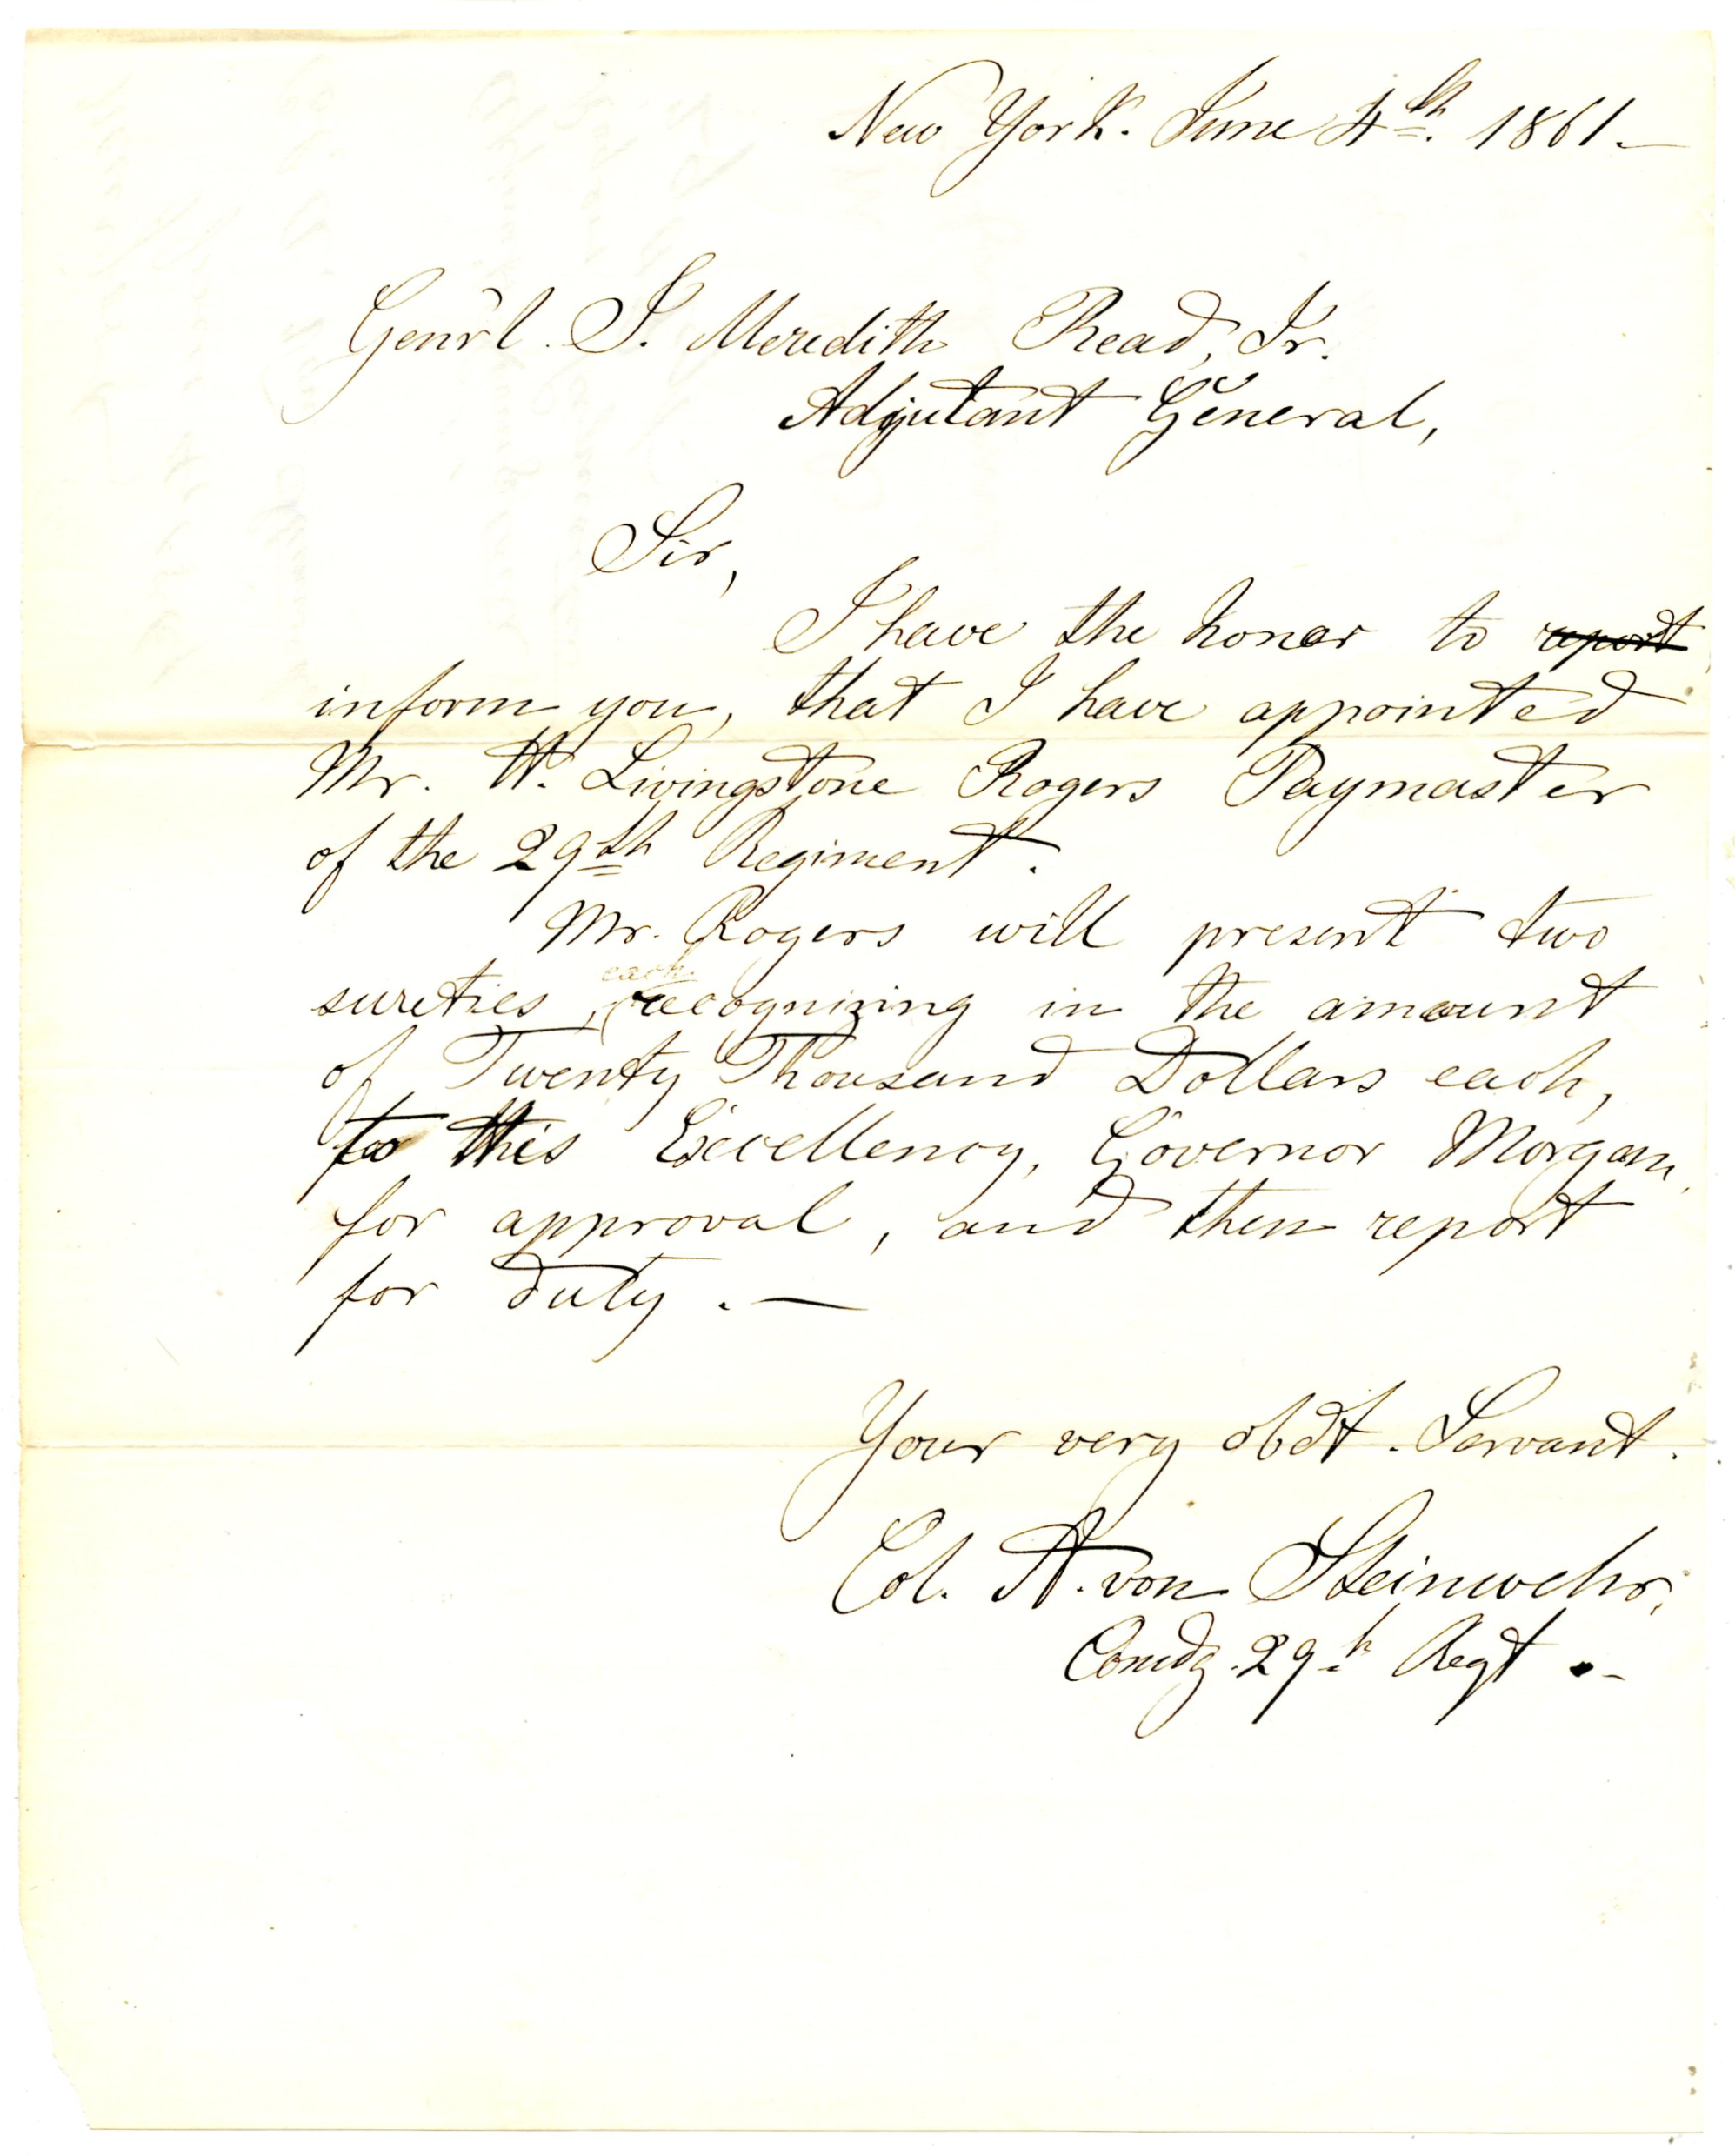 New York. June 4th. 1861.—
Genrl. J. Meredith Read, Jr.
Adjutant General,
Sir,
I have the honor to report
inform you, that I have appointed
Mr. W. Livingstone Rogers Paymaster
of the 29th Regiment.
Mr. Rogers will present two
each
sureties, recognizing in the amount
of Twenty Thousand Dollars each,
to this Excellency, Governor Morgan,
for approval, and then report
for duty.—
Your very obdt. Servant.
Col. A. von Steinwehr,
Comdg. 29th Regt.—